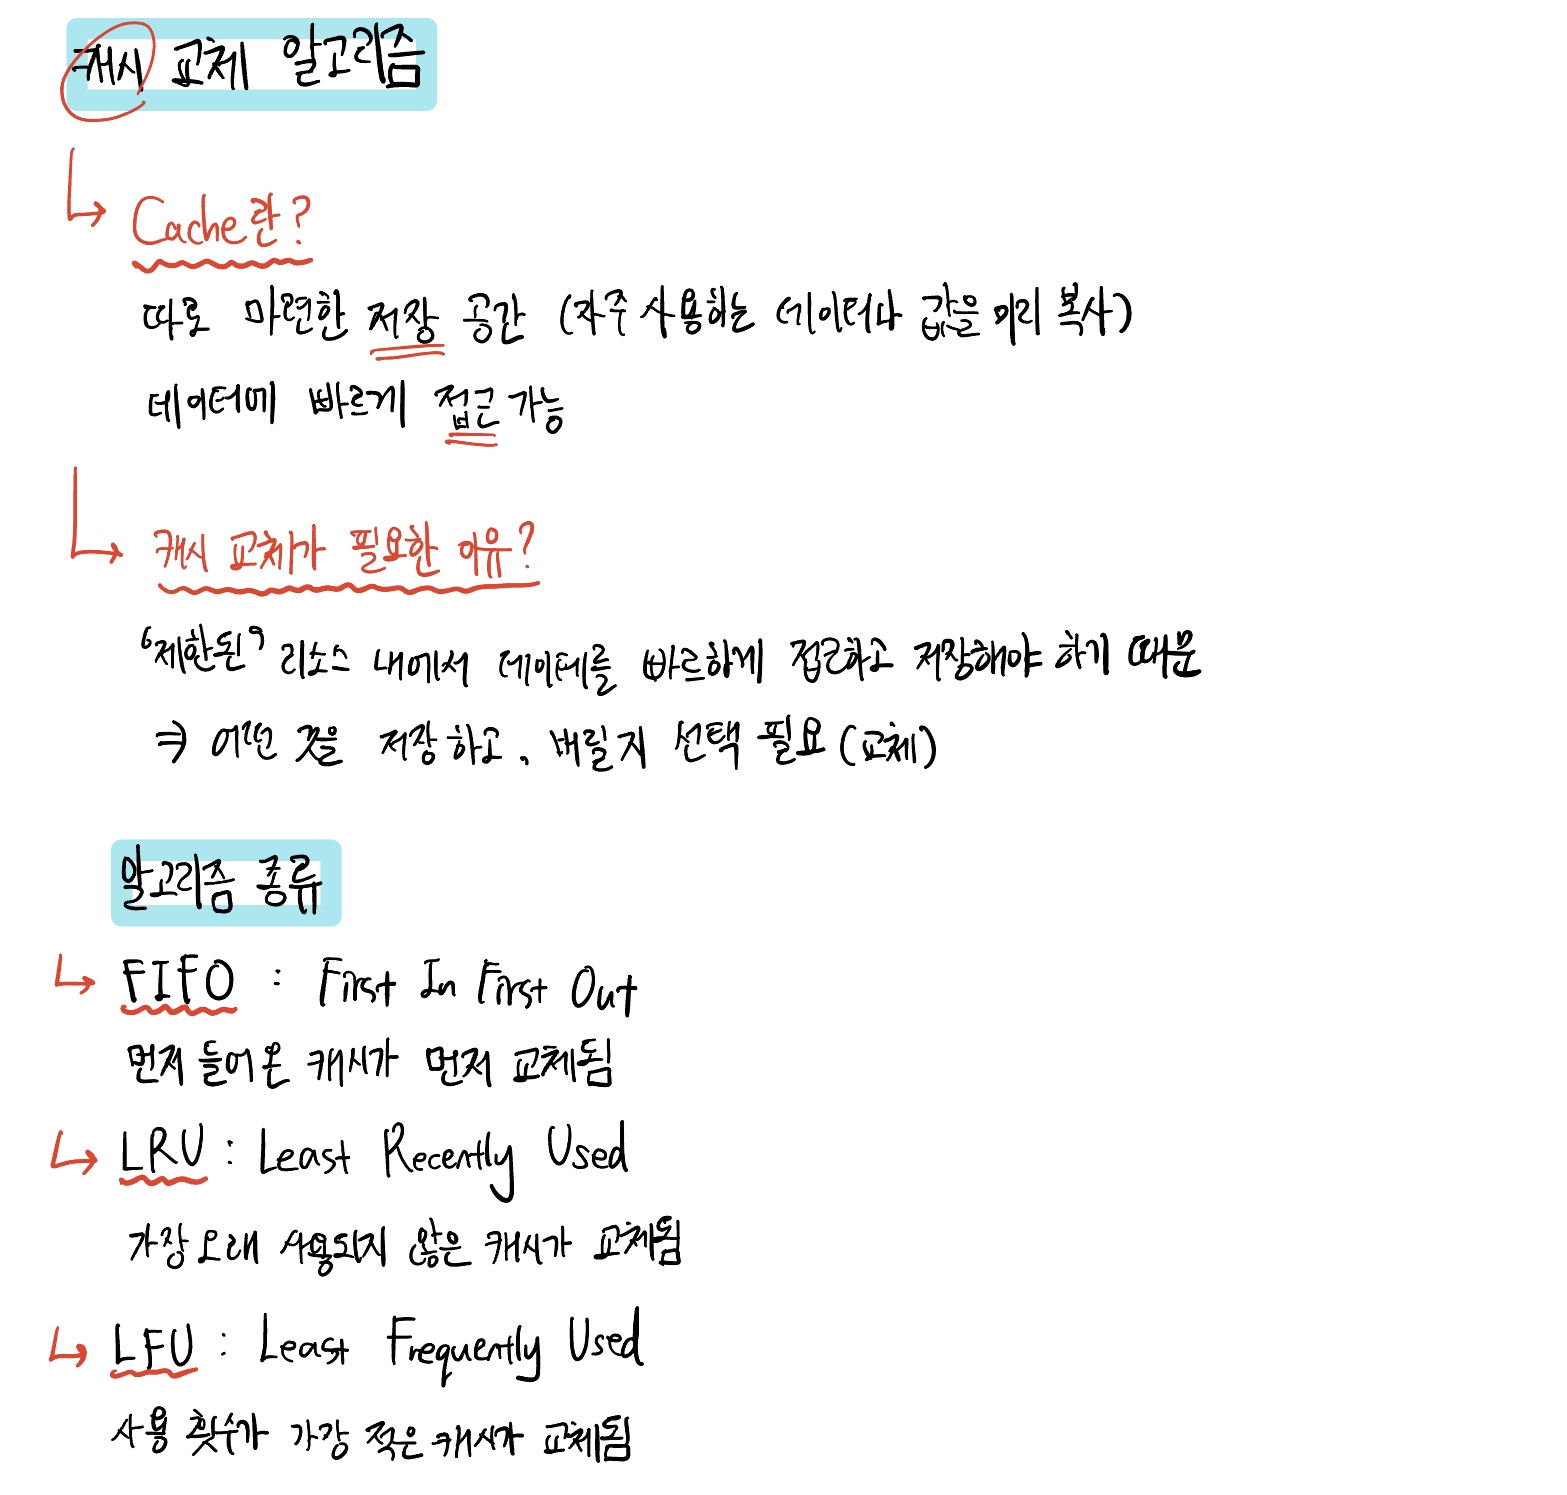 캐시 교체 알고리즘
Cache란?
따로 마련한 저장 공간 (자주 사용하는 데이터나 값을 미리 복사)
데이터에 빠르게 접근 가능
캐시 교체가 필요한 이유?
“제한된” 리소스 내에서 데이터를 빠르하게 접근하고 저장해야 하기 때문
⇒ 어떤 것을 저장하고, 버릴지 선택 필요 (교체)
알고리즘 종류
FIFO : First In First Out
먼저 들어온 캐시가 먼저 교체됨
LRU : Least Recently Used
가장 오래 사용되지 않은 캐시가 교체됨
LFU : Least Frequently Used
사용 횟수가 가장 적은 캐시가 교체됨